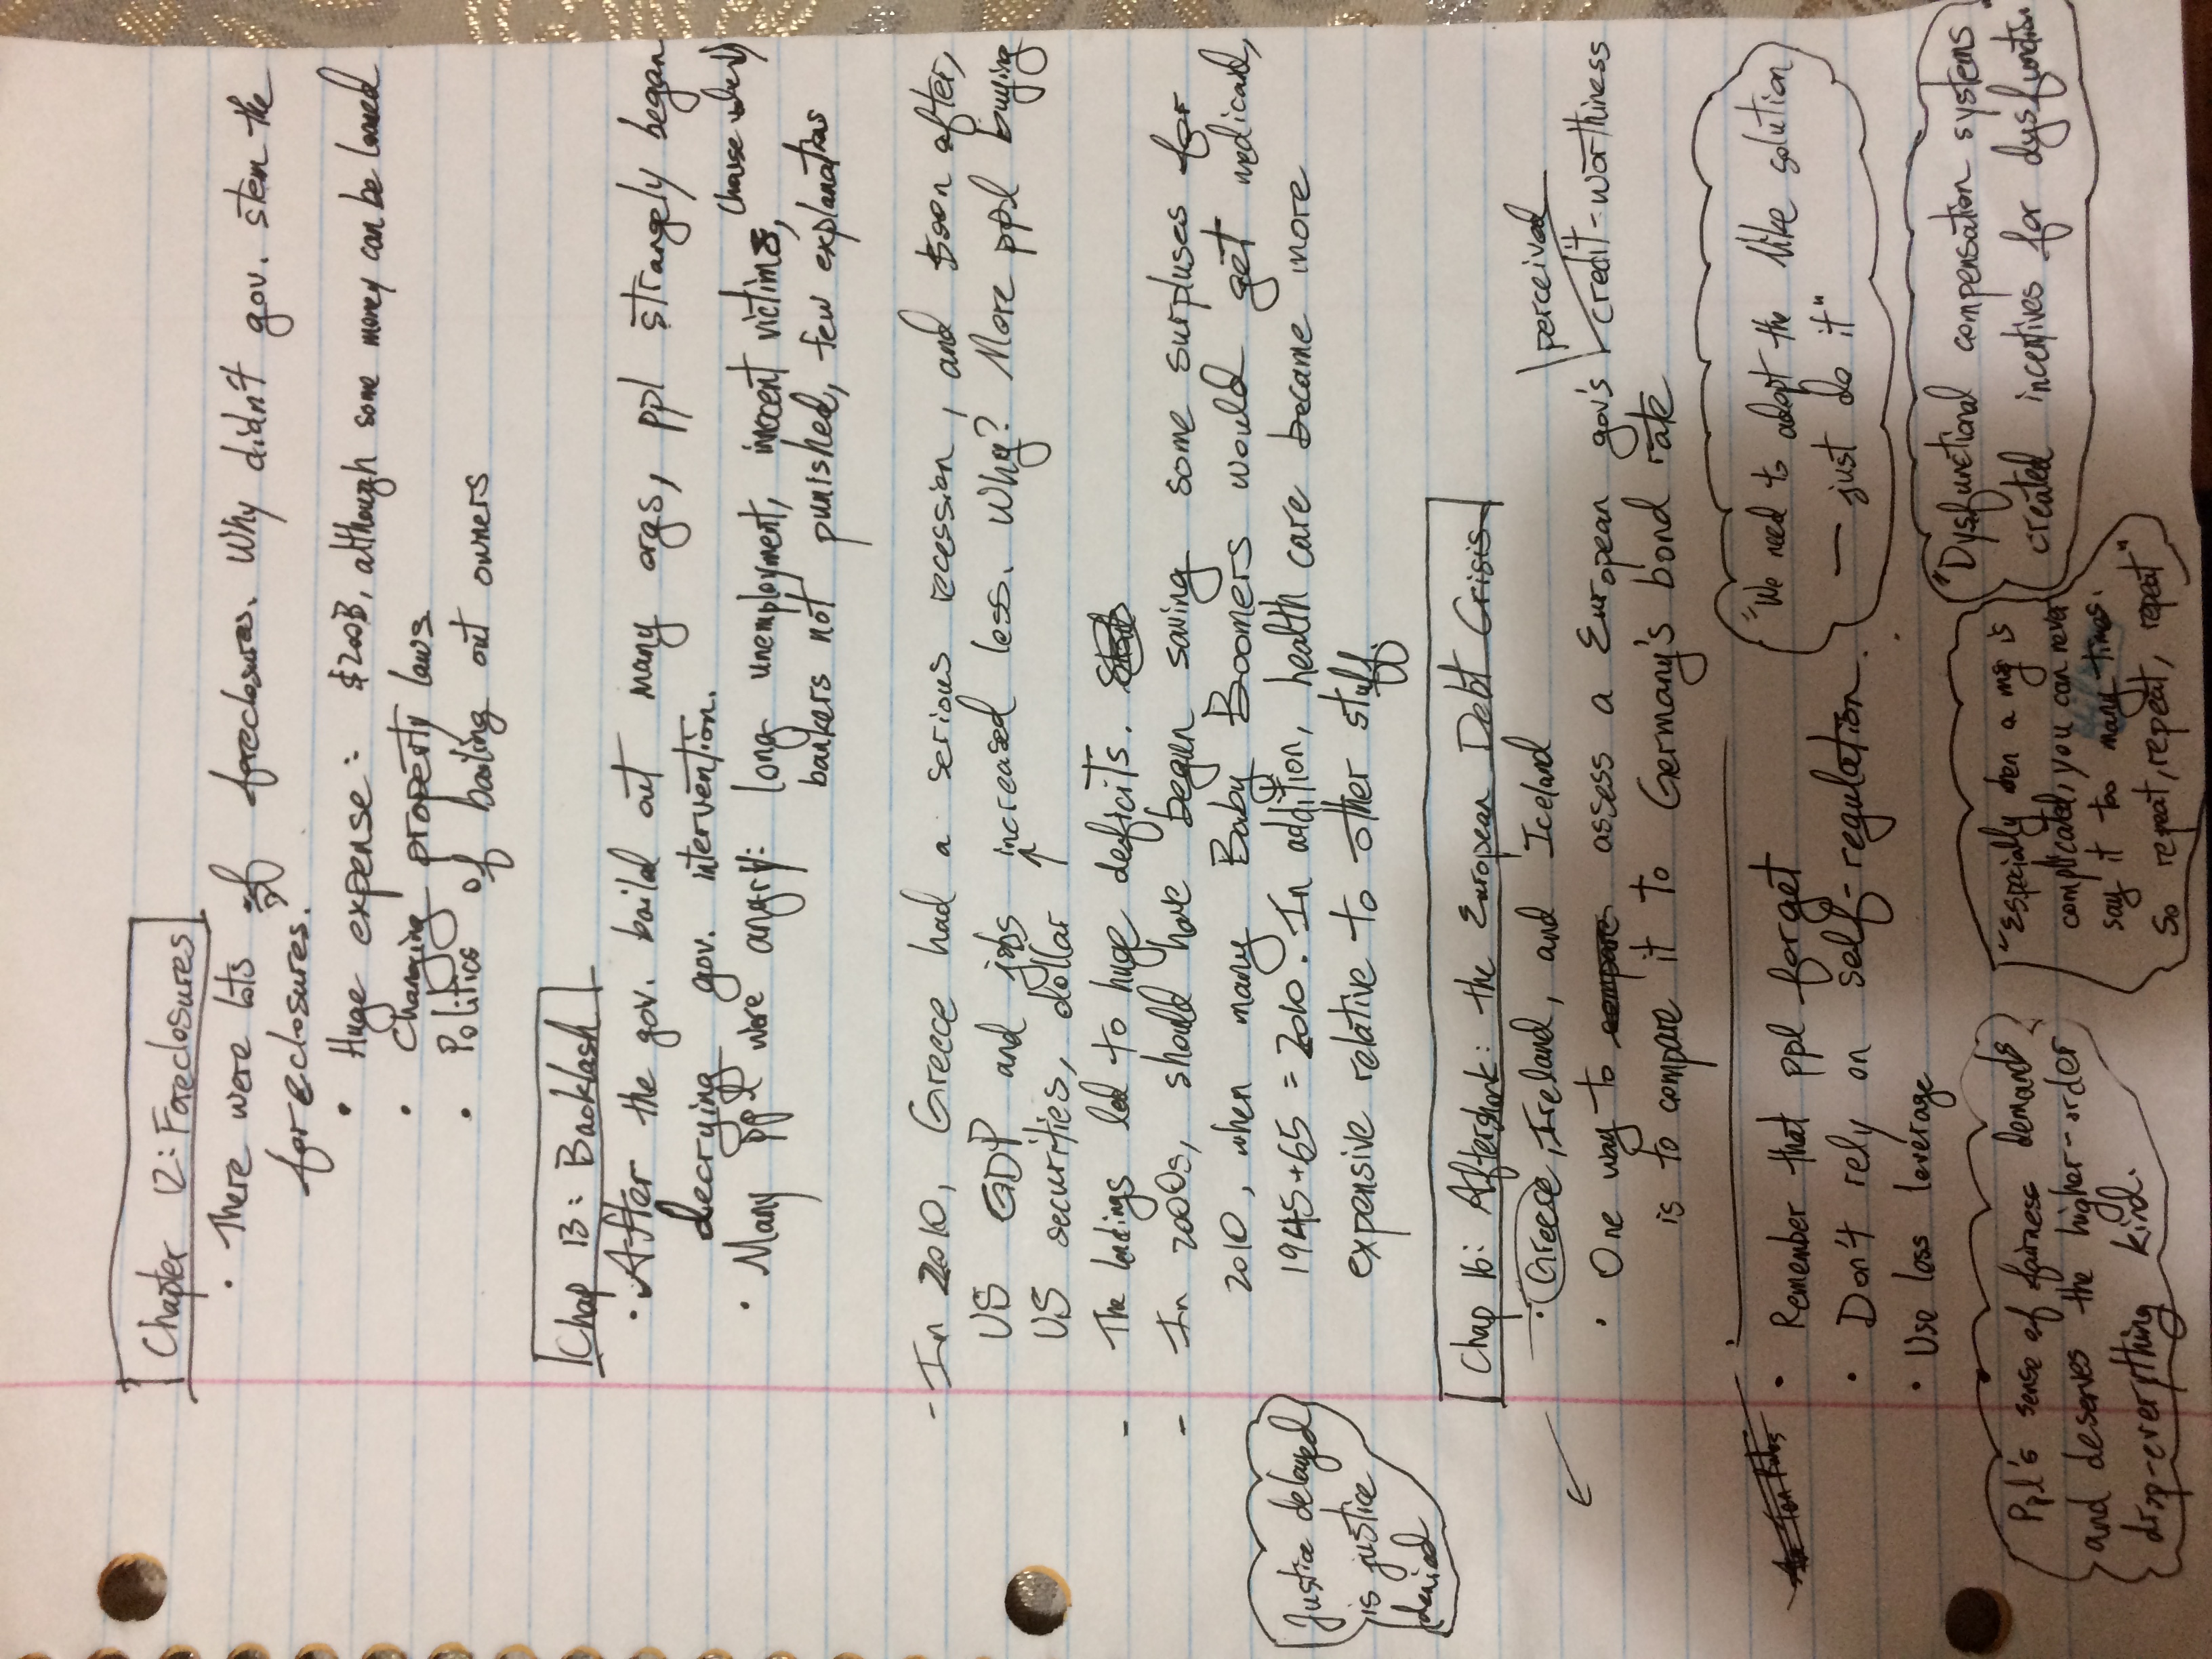 Chapter 12: Foreclosures
• There were lots of foreclosures. Why didn't gov. stem the
foreclosures?
• Huge expense: $200B, although some money can be loaned
• Changing property laws
• Politics of bailing out owners
Chap 13: Backlash
• After the gov. bailed out many orgs, ppl strangely began
decrying gov. intervention.
• Many ppl were angry: long unemployment, innocent victims, (house
bankers not punished, few explanations
- In 2010, Greece had a serious recession, and soon after,
US GDP and jobs increased less. Why? More ppl buying
US securities, dollar ↑
- The lendings led to huge deficits.
- In 2000s, should have begun saving some surpluses for
2010, when many Baby Boomers would get medicaid,
1945+65 = 2010. In addition, health care became more
expensive relative to other stuff.
Justice delayed
is justice
denied
Chap 16: Aftershock: the European Debt Crisis
• Greece, Ireland, and Iceland
• One way to compare assess a European gov's perceived credit-worthiness
is to compare it to Germany's bond rate
• Remember that ppl forget
• Don't rely on self-regulation.
• Use less leverage
"We need to adopt the Nike solution
— just do it"
"Dysfunctional compensation systems
created incentives for dysfunction"
Ppl's sense of fairness demands
and deserves the higher-order
drop-everything kind.
"Especially when a msg is
complicated, you can never
say it too many times.
So repeat, repeat, repeat"